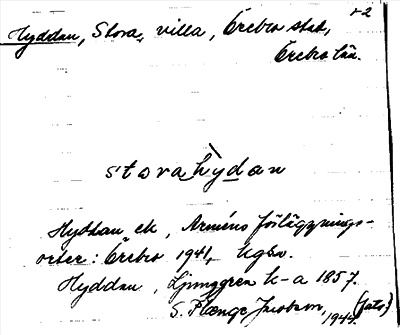 r2
Hyddan, Stora, villa, Örebro stad,
Örebro län.
stora hydan
Hyddan ek, Arméns förläggnings-
orter: Örebro 1941, hgsv.
Hyddan, Ljunggren k-a 1857.
S. Flænge Jacobson, 1944. (foto)